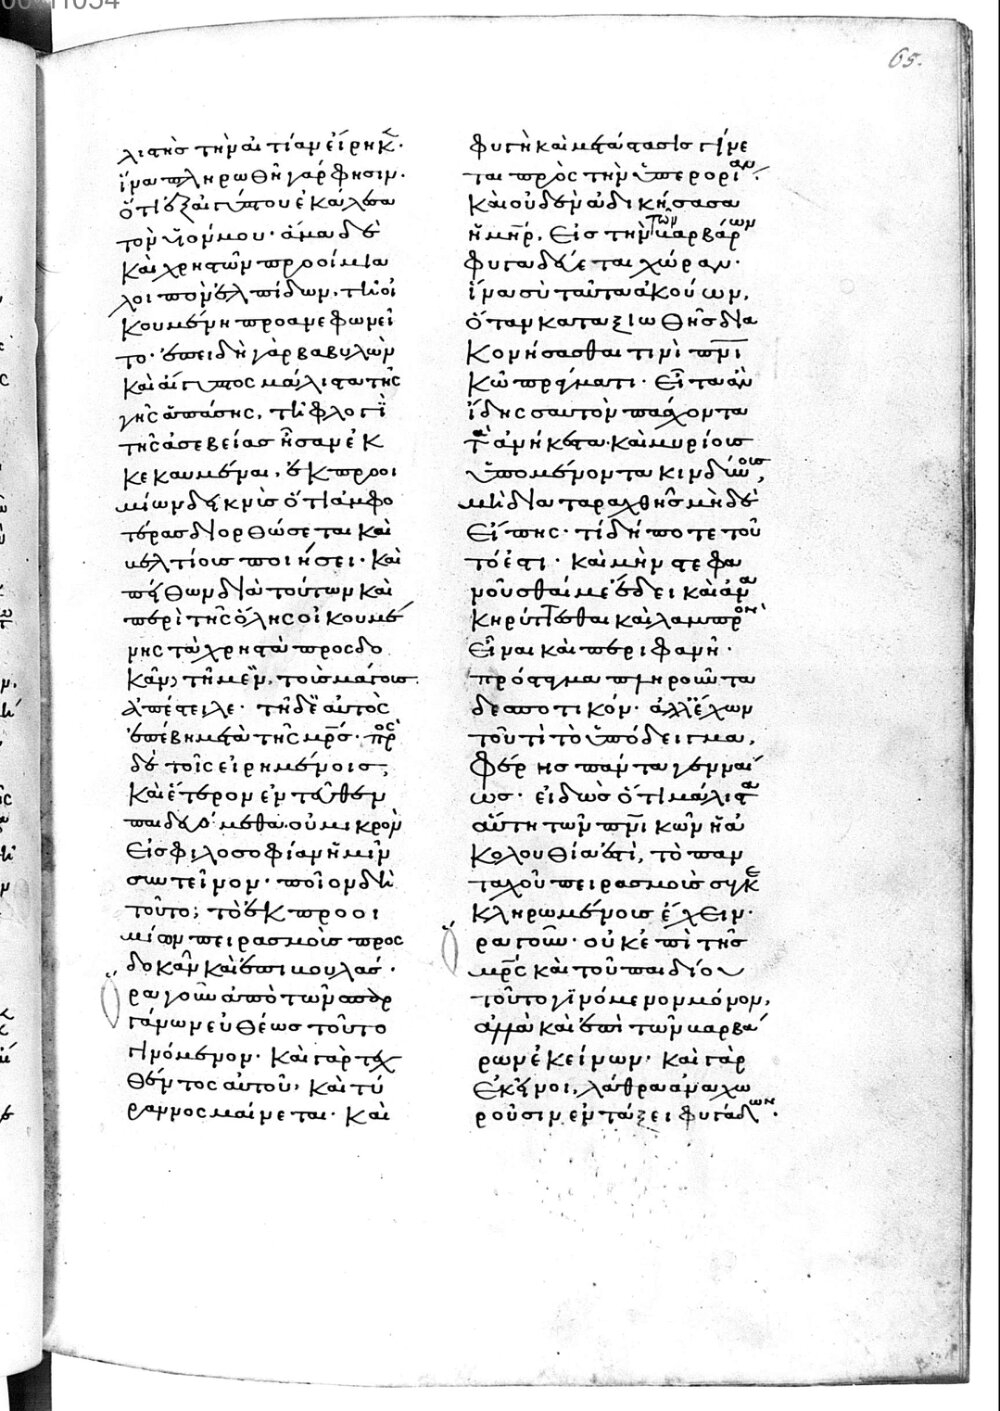 65.
λιστὴς τὴν αἰτίαν εἴρηκ.
ἵνα πληρωθῆ γάρ φησιν.
ὅτι ἐξ αἰγύπτου ἐκάλεσα
τὸν υἱόν μου· ἅμα δὲ
καὶ χρηστῶν προοίμια
λοιπὸν ἐλπίδων, τῆ οἰ
κουμένη προανεφωνεῖ
το· ἐπειδὴ γὰρ βαβυλὼν
καὶ αἴγυπτος μάλιστα τῆς
γῆς ἁπάσης, τῆ φλογὶ
τῆς ἀσεβείας ἦσαν ἐκ
κεκαυμέναι, ἐκ προοι
μίων δεικνὺς ὅτι ἀμφο
τέρας διορθώσεται καὶ
βελτίους ποιήσει· καὶ
πείθων διὰ τούτων καὶ
περὶ τῆς ὅλης οἰκουμέ
νης τὰ χρηστὰ προσδο
κᾶν, τῆ μὲν, τοὺς μάγους
ἀπέστειλε· τῆ δὲ αὐτὸς
ἐπέβη μετὰ τῆς μρς· πρὸς
δὲ τοῖς εἰρημένοις,
καὶ ἕτερον ἐντεῦθεν
παιδευόμεθα· οὐ μικρὸν
εἰς φιλοσοφίαν ἡμῖν
συντεῖνον· ποῖον δὴ
τοῦτο; τὸ ἐκ προοι
μίων πειρασμοὺς προσ
δοκᾶν καὶ ἐπιβουλάς·
ρα γοῦν ἀπὸ τῶν σπαρ
γάνων εὐθέως τοῦτο
γινόμενον· καὶ γὰρ τεχ
θέντος αὐτοῦ, καὶ τύ
ραννος μαίνεται· καὶ
φυγὴ καὶ μετάστασις γίνε
ται πρὸς τὴν ὑπερορίαν·
καὶ οὐδὲν ἀδικήσασα
ἡ μηρ, εἰς τὴν τῶν βαρβάρων
φυγαδεύεται χώραν·
ἵνα σὺ ταῦτα ἀκούων,
ὅταν καταξιωθῆς δια
κονήσασθαι τινὶ πνι
κῶ πράγματι· εἶτα ἂν
ἴδης σαυτὸν πάσχοντα
τὰ ἀνήκεστα· καὶ μυρίους
ὑπομένοντα κινδύνους,
μὴ διαταραχθῆς μὴδὲ
εἴπης· τί δήποτε τοῦ
τό ἐστι· καὶ μὴν στεφα
νοῦσθαί με ἔδει καὶ ἀνα
κηρύττεσθαι καὶ λαμπρὸν
εἶναι καὶ περιφανῆ·
πρόσταγμα πληροῦντα
δεσποτικόν· ἀλλ' ἔχων
τουτὶ τὸ ὑπόδειγμα,
φέρης πάντα γενναί
ως· εἰδὼς ὅτι μάλιστα
αὕτη τῶν πνικῶν ἡ ἀ
κολουθία ἐστὶ, τὸ παν
ταχοῦ πειρασμοὺς συγκε
κληρωμένους ἔχειν·
ρα γοῦν· οὐκ ἐπὶ τῆς
μρς καὶ τοῦ παιδίου
τοῦτο γινόμενον μόνον,
ἀλλὰ καὶ ἐπὶ τῶν βαρβά
ρων ἐκείνων· καὶ γὰρ
ἐκεῖνοι, λάθρα ἀναχω
ροῦσιν ἐν τάξει φυγάδων·